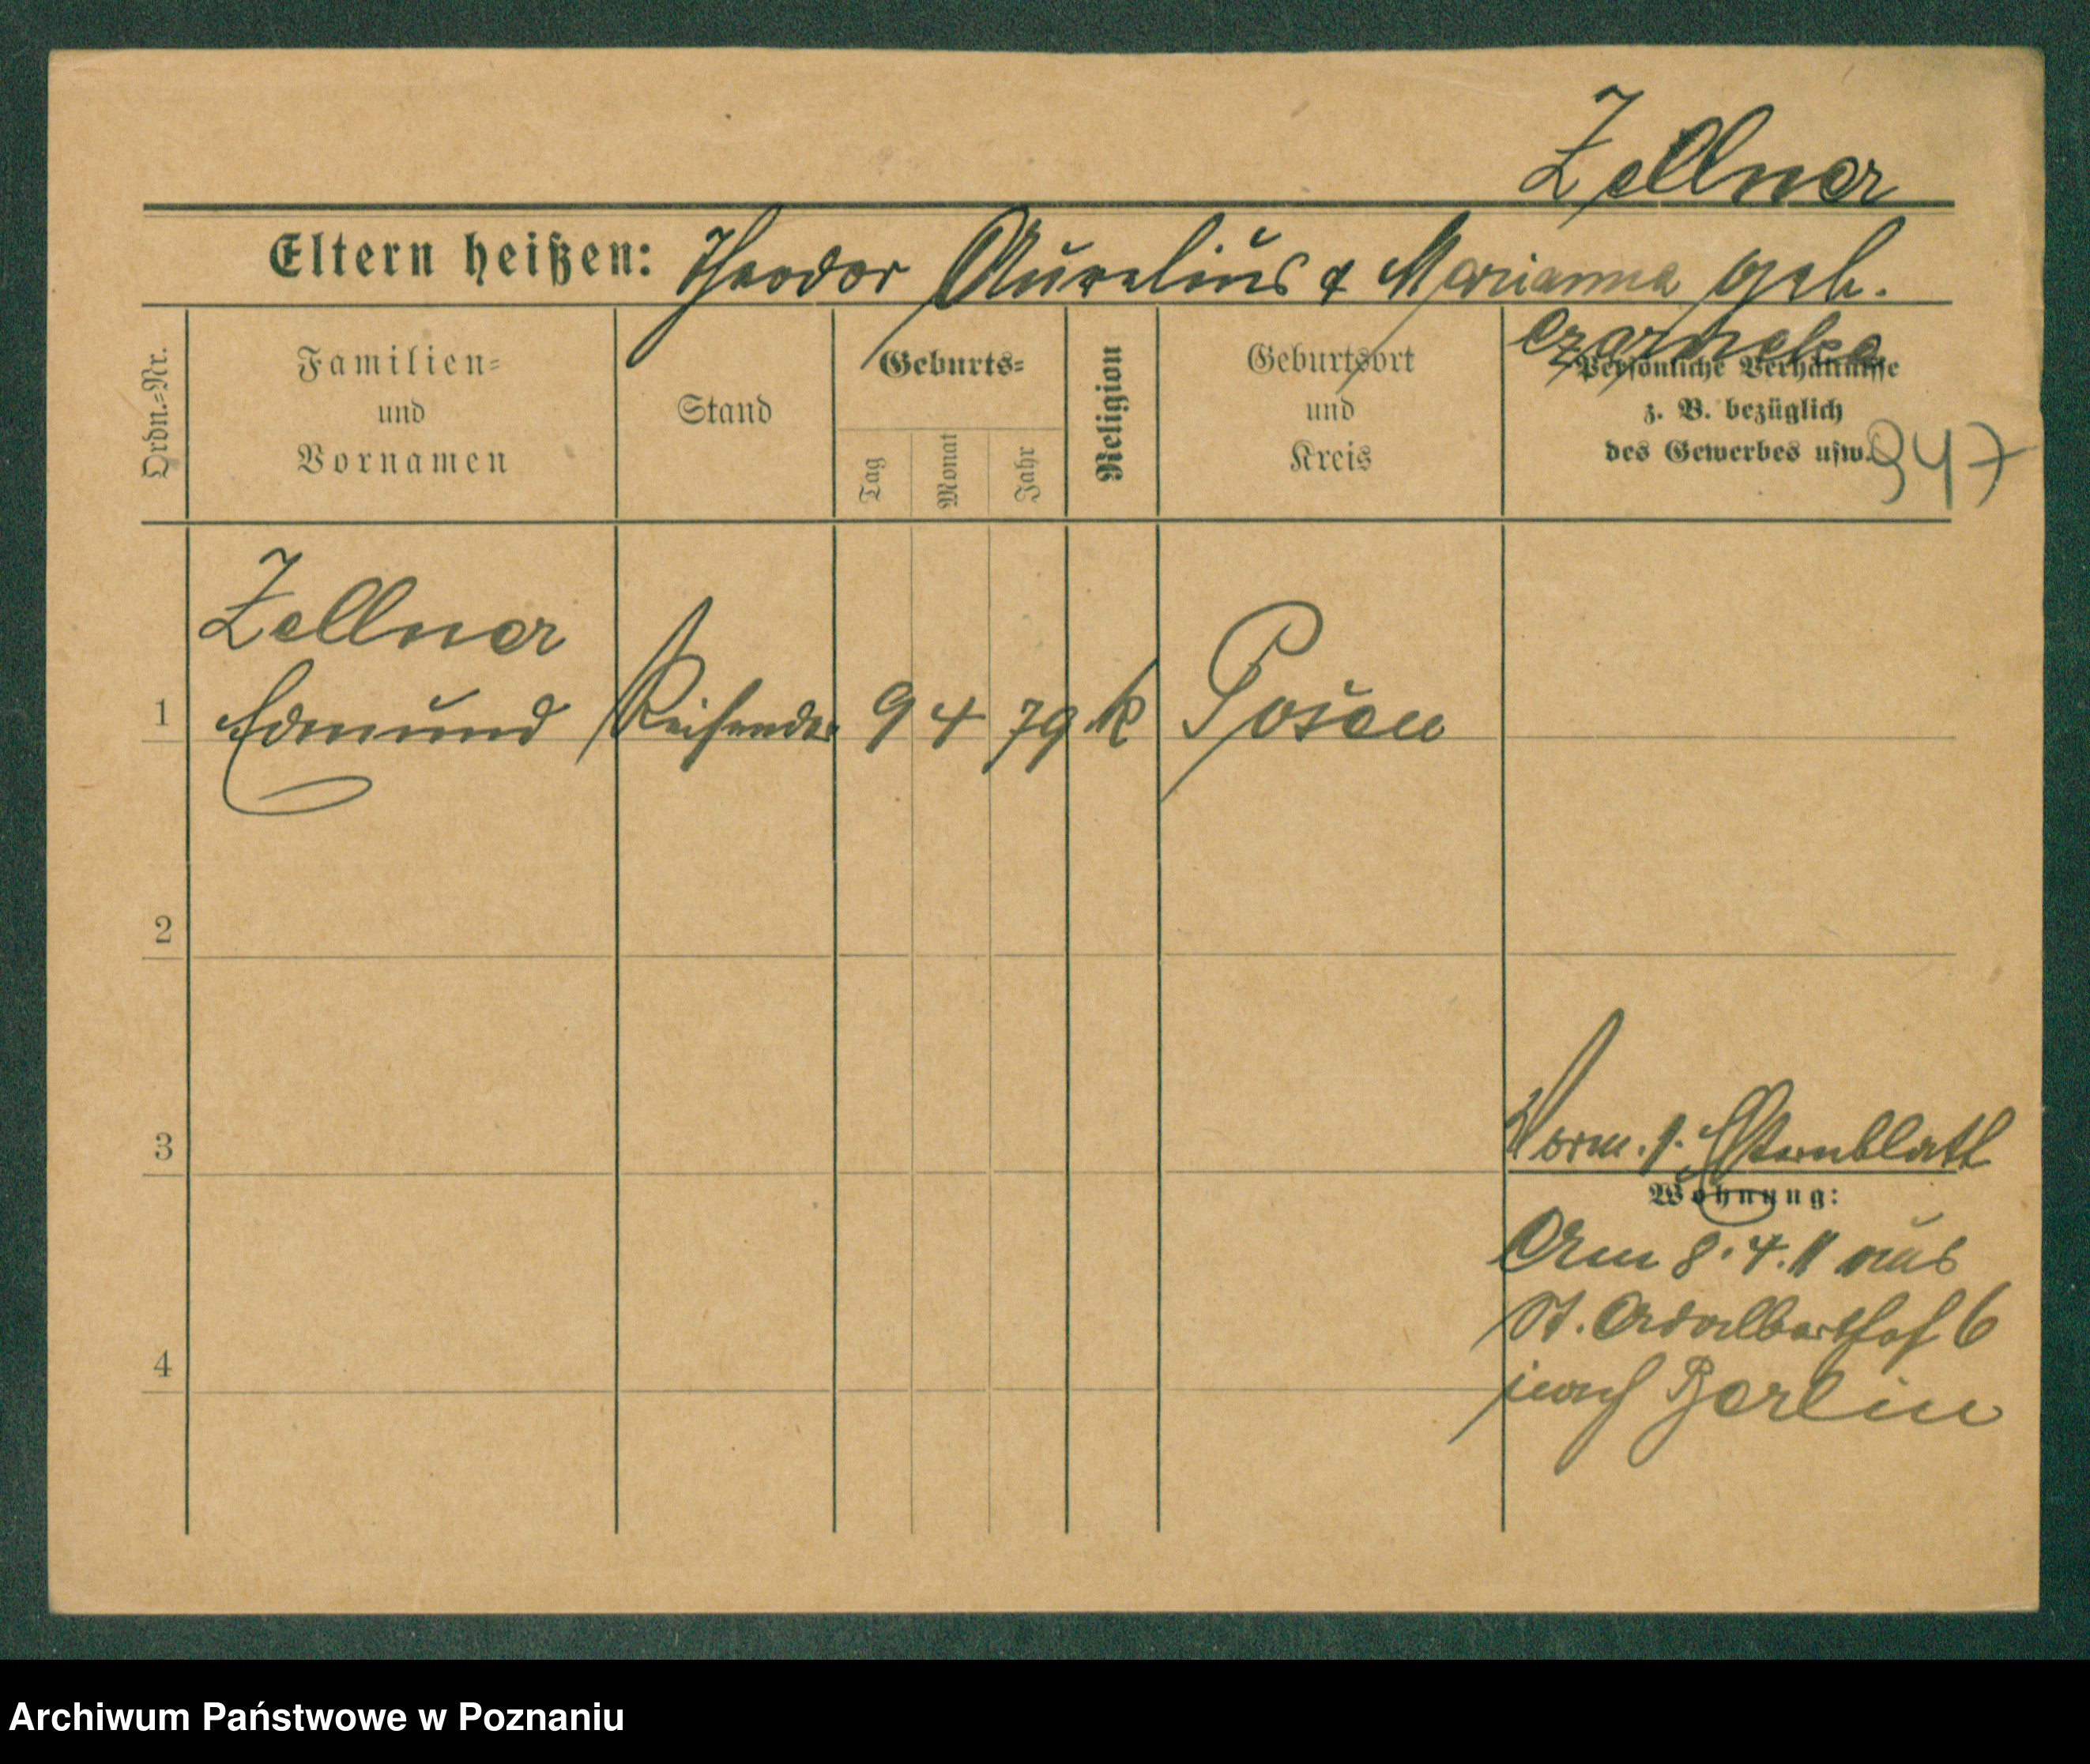 Zellner
Eltern heißen: Theodor Aurelius & Marianna geb.
Czarnecka
Ordn.=Nr.
Familien=
und
Vornamen
Stand
Geburts=
Tag
Monat
Jahr
Religion
Geburtsort
und
Kreis
Persönliche Verhältnisse
z. B. bezüglich
des Gewerbes usw.
947
Zellner
1 Edmund Reisender 9 4 79 k Posen
2
3
Vorm. s. Elternblatt
Wohnung:
Am 8.4.11 aus
St. Adalberthof 6
4
nach Berlin
Archiwum Państwowe w Poznaniu